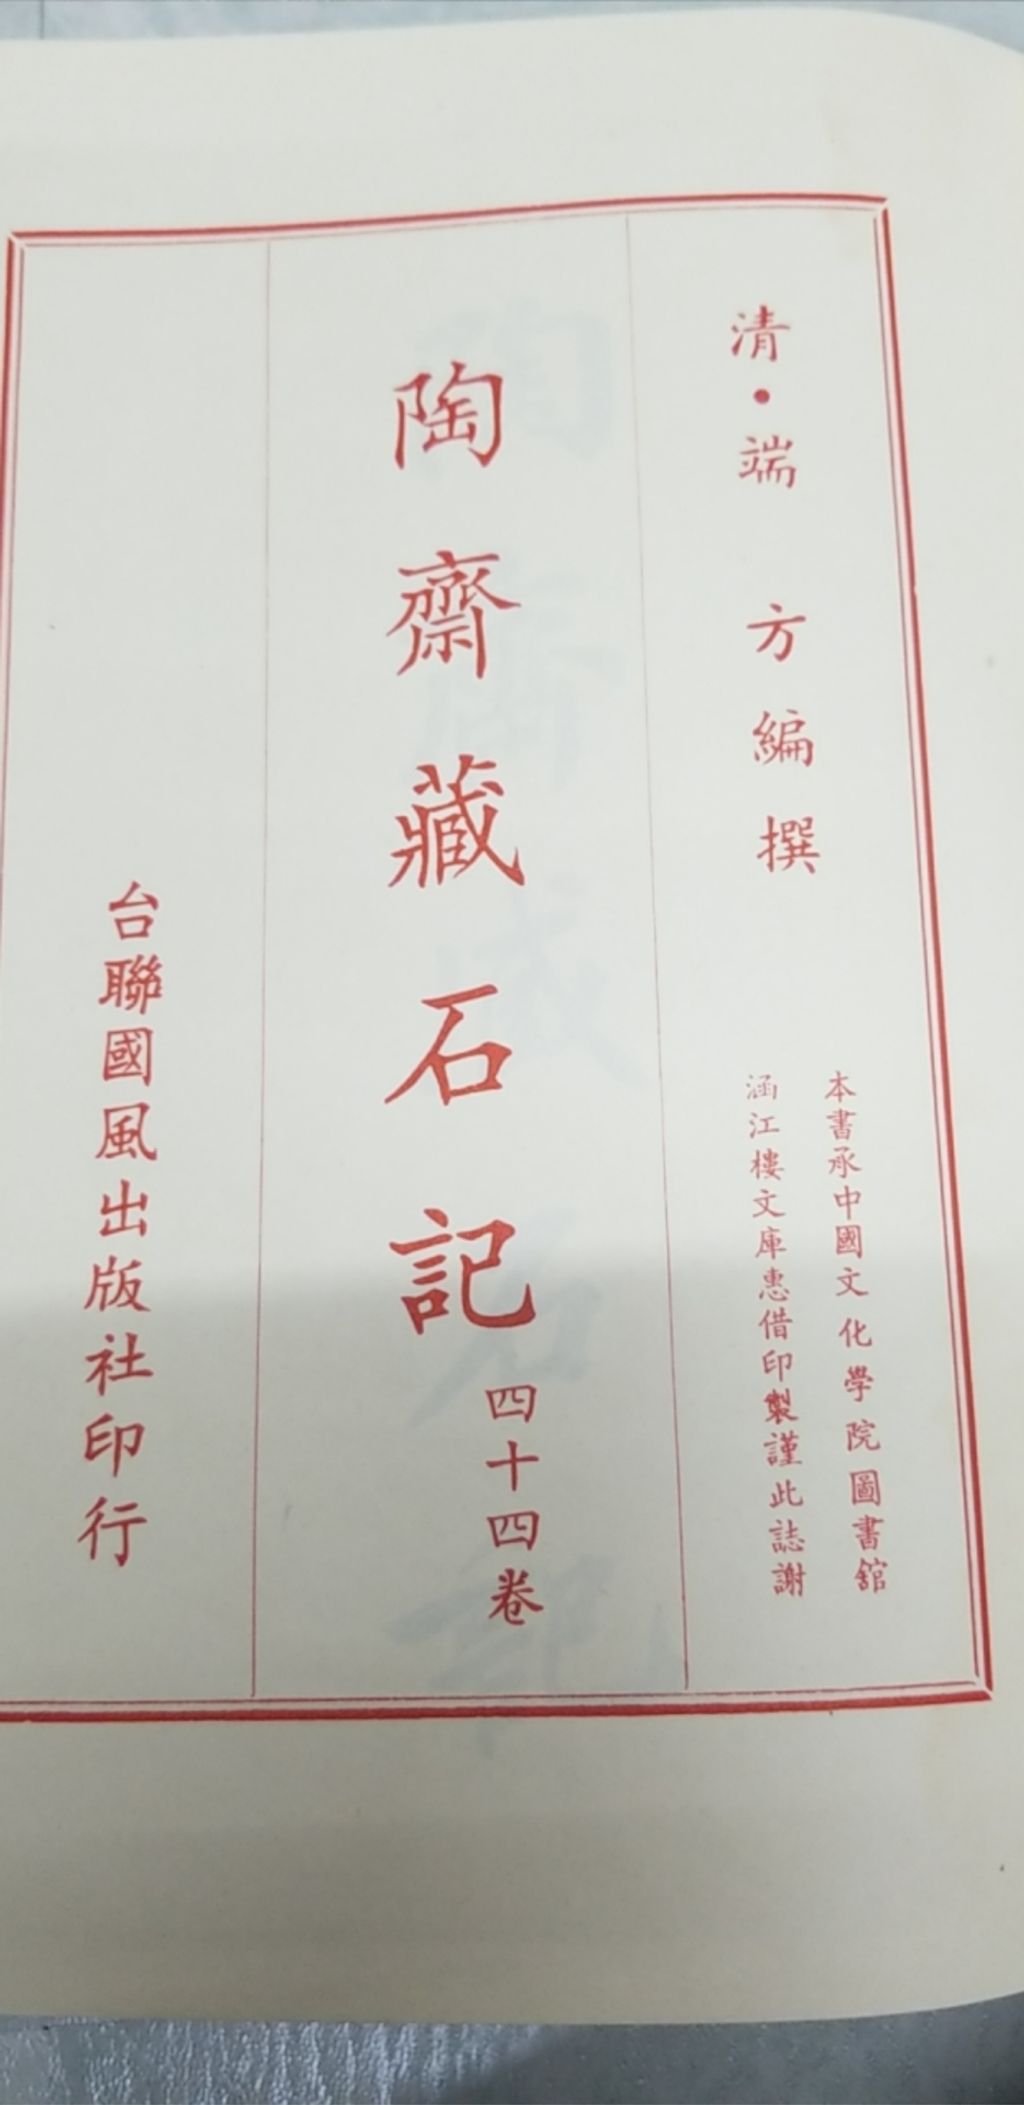 清・端方編撰
本書承中國文化學院圖書館
涵江樓文庫惠借印製謹此誌謝
陶齋藏石記
四十四卷
台聯國風出版社印行